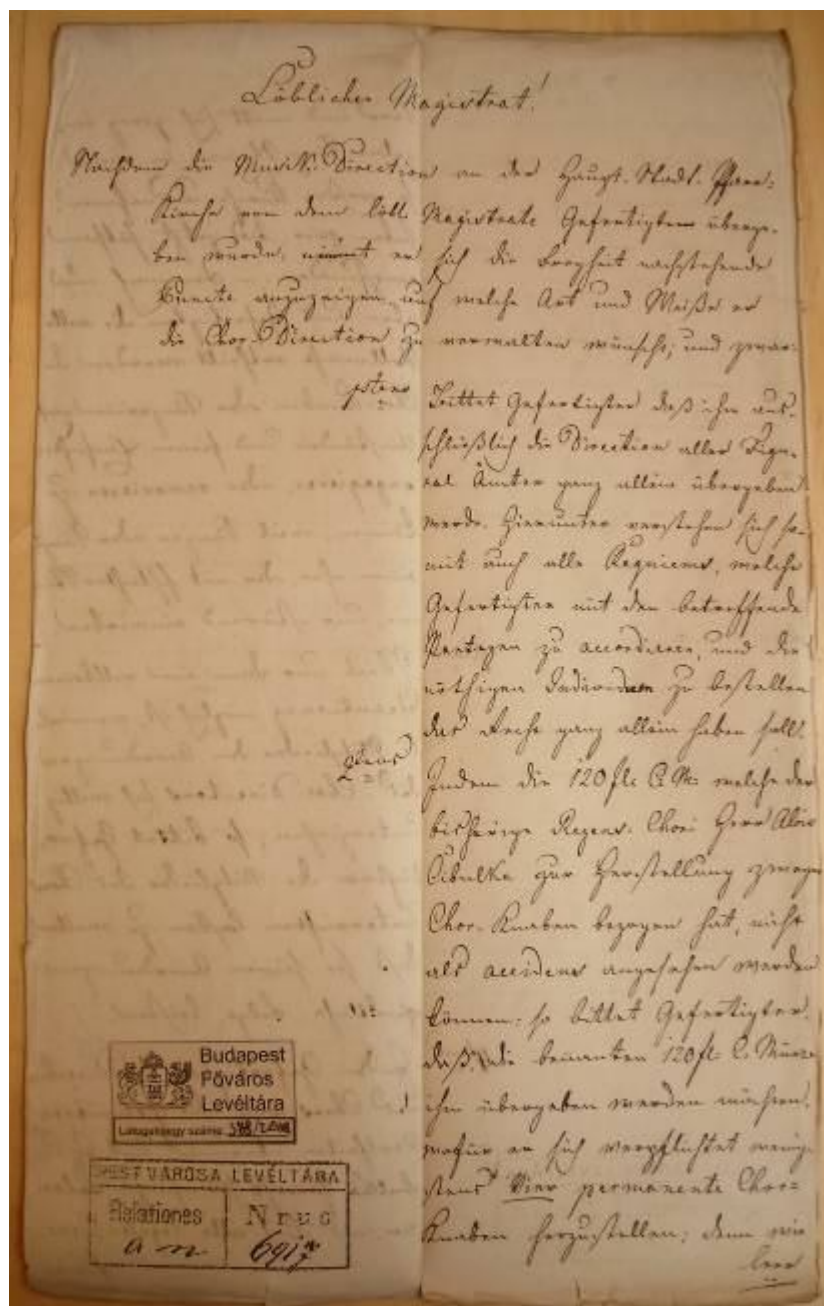 Löblicher Magistrat!
Nachdem die Musik-Direction an der Haupt-Stadt-Pfarr-
Kirche von dem löbl. Magistrate Gefertigtem überge-
ben wurde, nimmt er sich die Freyheit nachstehende
Puncte anzuzeigen, auf welche Art und Weiße er
die Chor-Direction zu verwalten wünscht; und zwar:
1stens Bittet Gefertigter daß ihm aus-
schließlich die Direction aller Figu-
ral Ämter ganz allein übergeben
werde. Hierunter verstehen sich so-
mit auch alle Requiems, welche
Gefertigter mit den betreffende
Partheyen zu accordieren, und die
nöthigen Individuen zu bestellen
das Recht ganz allein haben soll.
2tens Indem die 120 fl. C. M. welche der
bisherige Regens-Chori Herr Alois
Cibulka zur Herstellung zweyer
Chor-Knaben bezogen hat, nicht
als accidens angesehen werden
können: so bittet Gefertigter,
daß die benannten 120 fl. C. Münze
ihm übergeben werden möchten,
wofür er sich verpflichtet wenig-
stens Vier permanente Chor-
Knaben herzustellen; denn wie
leer
Budapest
Főváros
Levéltára
PEST VÁROSA LEVÉLTÁRA
Relationes
a n
Nrus